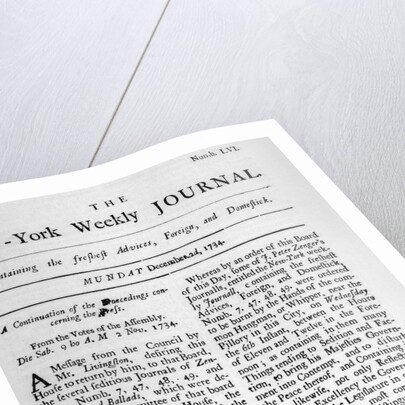 Numb. LVI.
THE
-York Weekly JOURNAL
ntaining the freſheſt Advices, Foreign, and Domeſtick.
MUNDAY December 2d, 1734.
A Continuation of the Proceedings con-
cerning the Preſs.
From the Votes of the Aſſembly.
Die Sab. 9 ho A. M 2 Nov. 1734.
A Meſſage from the Council by
Mr. Livingſton, deſiring this
Houſe to return by him, to that Board,
the ſeveral ſeditious Journals of Zen
Numb, 7, 47, 48, 49 and
Ballads, which were de-
committee of that board
Whereas by an order of this Board
of this Day, ſome of J. Peter Zenger's
Journals, entitled the New-York week-
Journall, containing the freſheſt
Advices, Foreign, and Domeſtick
Numb, 7, 47, 48, 49. were ordered
to be burnt by the Hands of the com-
mon Hangman, or Whipper near the
Pillory, in this City, on Wedneſday
the 6th Inſtant, between the Hours
of Eleven and Twelve in the Fore-
noon; as containing in them many
Things tending to Sedition and Fac-
tion, to bring his Majeſties Govern-
ment into Contempt, and to diſturb
the Peace thereof, and Containing
likewiſe, not only Reflections
Excellency the Governor
Legiſlature